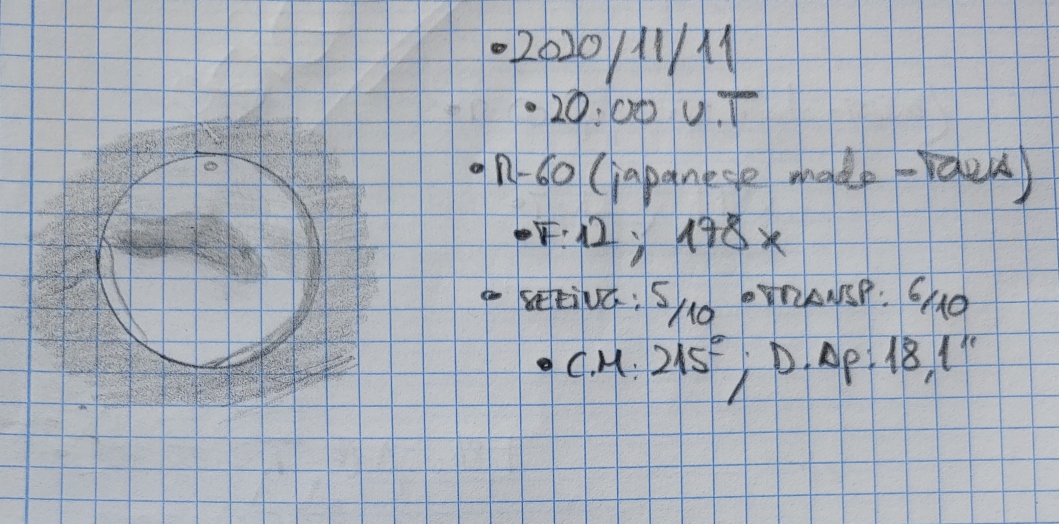 • 2020/11/11
• 20:00 U.T
• R-60 (japanese made -
• F:12 ; 178x
• SEEING: 5/10 • TRANSP: 6/10
• C.M: 215° ; D.Ap: 18,1"